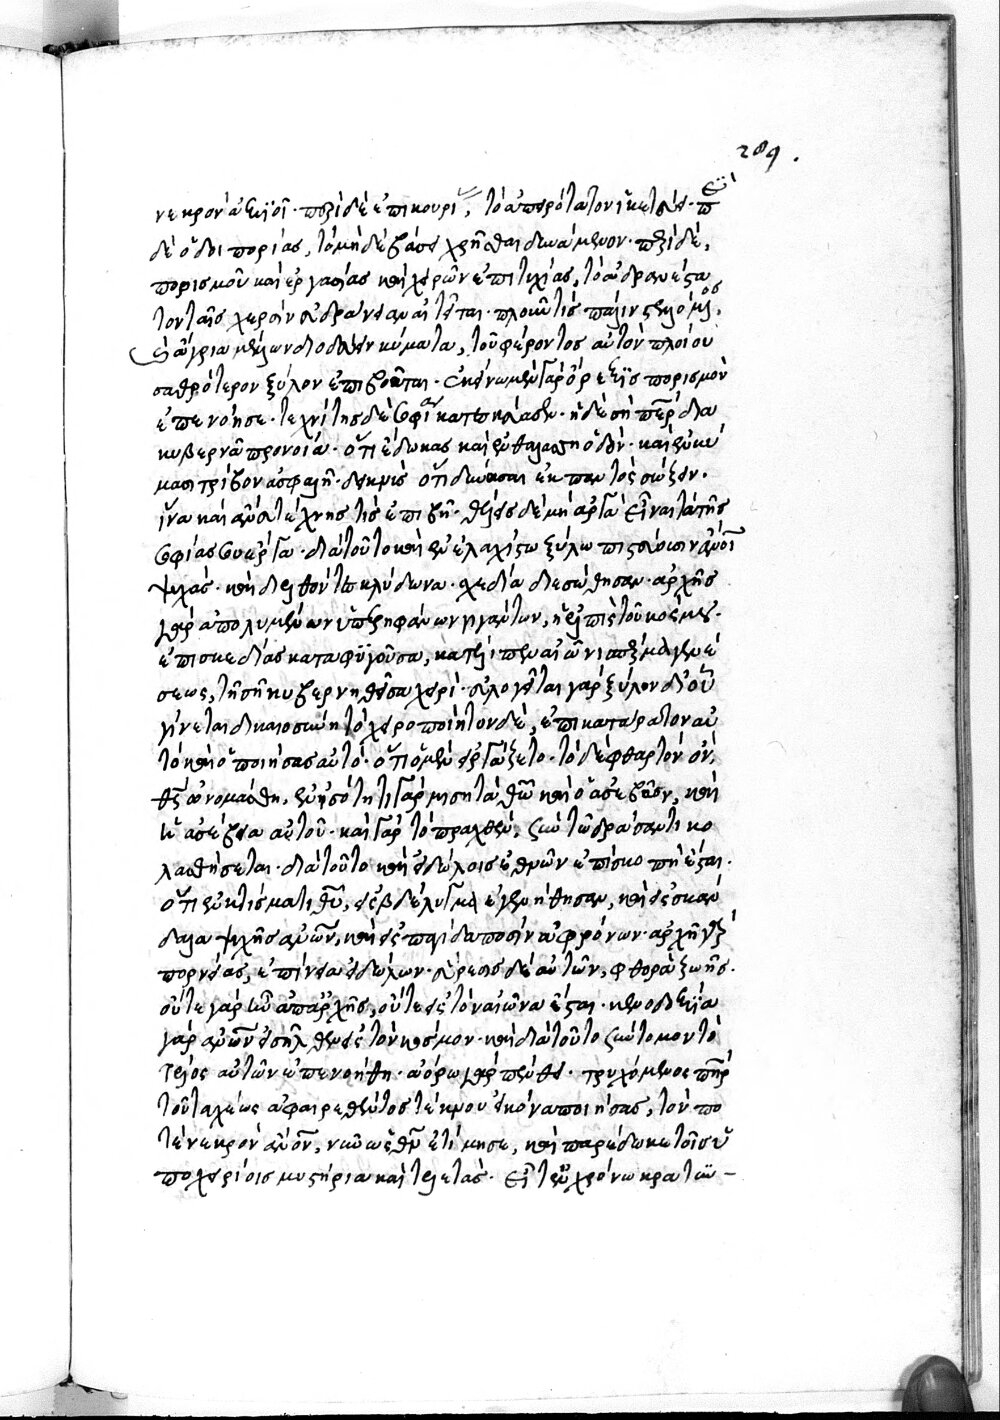 289.
νεκρὸν ἀξιοῖ· περὶ δὲ ἐπικουρίας, τὸ ἀπειρότατον ἱκετεύει· περὶ
δὲ ὁδοιπορίας, τὸ μηδὲ βάσει χρῆσθαι δυνάμενον· περὶ δὲ,
πορισμοῦ καὶ ἐργασίας καὶ χειρῶν ἐπιτυχίας, τὸ ἀδρανέστα
τον ταῖς χερσὶν εὐδράνειαν αἰτεῖται· πλοῦν τίς πάλιν στελλόμενος,
καὶ ἄγρια μέλλων διοδεύειν κύματα, τοῦ φέροντος αὐτὸν πλοίου
σαθρότερον ξύλον ἐπιβοᾶται· ἐκεῖνο μὲν γὰρ ὄρεξις πορισμῶν
ἐπενόησε· τεχνίτης δὲ σοφίαν κατεσκεύασεν· ἡ δὲ σὴ πάτερ δια
κυβερνᾶ πρόνοια· ὅτι ἔδωκας καὶ ἐν θαλάσσῃ ὁδὸν· καὶ ἐν κύ
μασι τρίβον ἀσφαλῆ· δεικνὺς ὅτι δύνασαι ἐκ παντὸς σώζειν·
ἵνα καὶ ἄνευ τέχνης τίς ἐπιβῇ· θέλεις δὲ μὴ ἀργὰ εἶναι τὰ τῆς
σοφίας σου ἔργα· διὰ τοῦτο καὶ ἐν ἐλαχίστω ξύλω πιστεύουσιν ἄνθρωποι
ψυχάς· καὶ διελθόντες κλύδωνα· σχεδία διεσώθησαν· ἀρχῆς
γὰρ ἀπολυμένων ὑπερηφάνων γιγάντων, ἡ ἐλπὶς τοῦ κόσμου·
ἐπὶ σχεδίας καταφυγοῦσα, κατέλιπεν αἰῶνι σπέρμα γενέ
σεως, τῇ σῇ κυβερνηθεῖσα χειρί· εὐλογεῖται γὰρ ξύλον δι' οὗ
γίνεται δικαιοσύνη τὸ χειροποίητον δὲ, ἐπικατάρατον αὐ
τὸ καὶ ὁ ποιήσας αὐτό· ὅτι ὁ μὲν εἰργάζετο· τὸ δὲ φθαρτὸν ὂν,
θεὸς ὠνομάσθη, ἐν ἰσότητι γὰρ μισητὰ θεῶ καὶ ὁ ἀσεβῶν, καὶ
ἡ ἀσέβεια αὐτοῦ· καὶ γὰρ τὸ πραχθὲν, σὺν τῶ δράσαντι κο
λασθήσεται· διὰ τοῦτο καὶ εἰδώλοις ἐθνῶν ἐπισκοπὴ ἔσται·
ὅτι ἐν κτίσματι θεοῦ, εἰς βδέλυγμα ἐγενήθησαν, καὶ εἰς σκάν
δαλα ψυχῆς ἀνθρώπων, καὶ εἰς παγίδα ποσὶν ἀφρόνων· ἀρχὴ γὰρ
πορνείας, ἐπίνοια εἰδώλων· εὕρεσις δὲ αὐτῶν, φθορὰ ζωῆς·
οὔτε γὰρ ἦν ἀπαρχῆς, οὔτε εἰς τὸν αἰῶνα ἔσται· κενοδοξία
γὰρ ἀνθρώπων εἰσῆλθεν εἰς τὸν κόσμον· καὶ διὰ τοῦτο σύντομον τὸ
τέλος αὐτῶν ἐπενοήθη· ἀώρω γὰρ πένθει· τρυχόμενος πατὴρ
τοῦ ταχέως ἀφαιρεθέντος τέκνου εἰκόνα ποιήσας, τόν πο
τε νεκρὸν ἄνθρωπον, νῦν ὡς θεὸν ἐτίμησε, καὶ παρέδωκε τοῖς ὑ
ποχειρίοις μυστήρια καὶ τελετάς· εἶτ' ἐν χρόνω κρατυν-